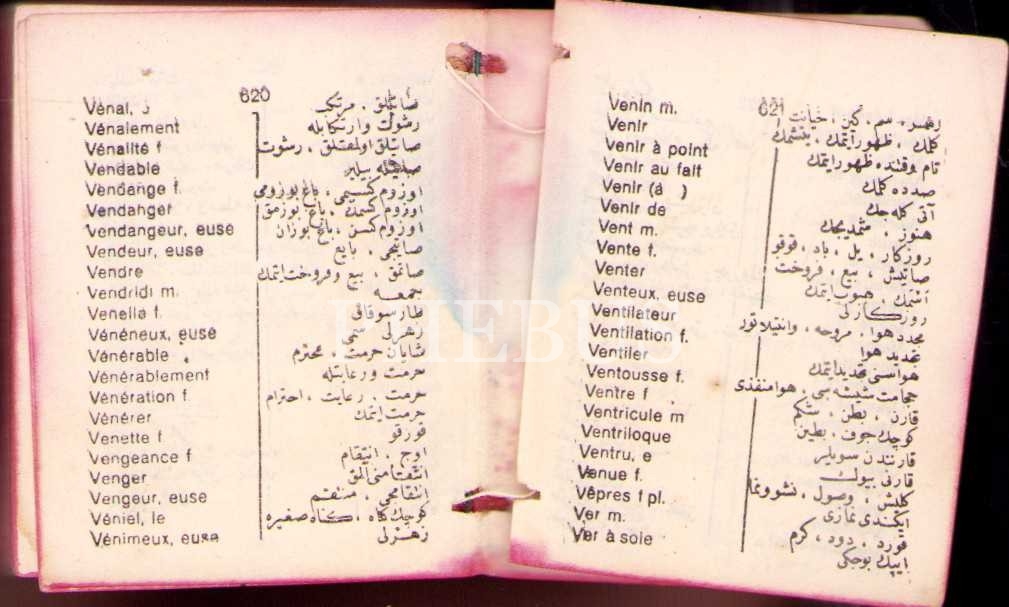 620
Vénal, e صاتیلق ، مرتکب
Vénalement رشوت وارتكابله
Vénalité f صاتلق اولمقلق ، رشوت
Vendable بیلیر
Vendange f. اوزوم كسیمی ، باغ بوزومی
Vendanger اوزوم كسمك ، باغ بوزمق
Vendangeur, euse اوزوم كسن ، باغ بوزان
Vendeur, euse صاتیجی ، بایع
Vendre صاتمق ، بیع وفروخت ایتمك
Vendridi m. جمعه
Venella f. طار سوقاق
Vénéneux, euse زهرلی ، سمی
Vénérable شایان حرمت ، محترم
Vénérablement حرمت ورعایتله
Vénération f حرمت ، رعایت ، احترام
Vénérer حرمت ایتمك
Venette f قورقو
Vengeance f اوج ، انتقام
Venger انتقامنی المق
Vengeur, euse انتقامجی ، منتقم
Véniel, le كوچك كناه ، كناه صغیره
Vénimeux, euse زهرلی
621
Venin m. زهر ، سم ، كین ، خیانت
Venir كلمك ، ظهور ایتمك ، یتشمك
Venir à point تام وقتنده ظهور ایتمك
Venir au fait صدده كلمك
Venir (à ) آتی كله جك
Venir de هنوز ، شمدیجك
Vent m. روزكار ، یل ، باد ، قوقو
Vente f. صاتیش ، بیع ، فروخت
Venter اسمك ، هبوب ایتمك
Venteux, euse روزكارلی
Ventilateur مجدد هوا ، مروحه ، وانتیلاتور
Ventilation f. تجدید هوا
Ventiler هواسنی تجدید ایتمك
Ventouse f. حجامت شیشه سی ، هوا منفذی
Ventre f قارن ، بطن ، شكم
Ventricule m كوچك جوف ، بطین
Ventriloque قارنندن سویلر
Ventru, e قارنی بیوك
Venue f. كلیش ، وصول ، نشوونما
Vêpres f pl. ایكندی نمازی
Ver m. قورد ، دود ، كرم
Ver à soie ایپك بوجكی
PHEBUS